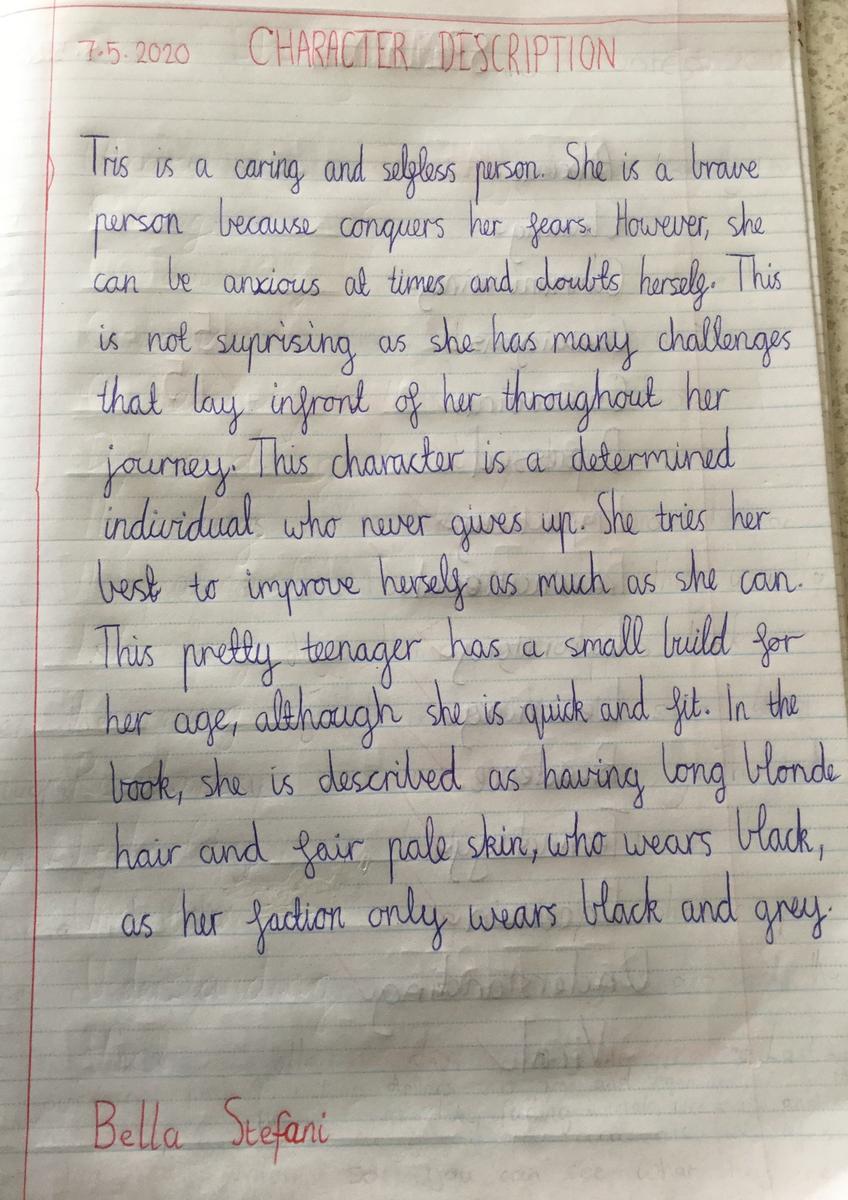 7.5.2020 CHARACTER DESCRIPTION
Tris is a caring and selfless person. She is a brave
person because conquers her fears. However, she
can be anxious at times and doubts herself. This
is not suprising as she has many challenges
that lay infront of her throughout her
journey. This character is a determined
individual who never gives up. She tries her
best to improve herself as much as she can.
This pretty teenager has a small build for
her age, although she is quick and fit. In the
book, she is described as having long blonde
hair and fair pale skin, who wears black,
as her faction only wears black and grey.
Understanding
Bella Stefani
So you can see what